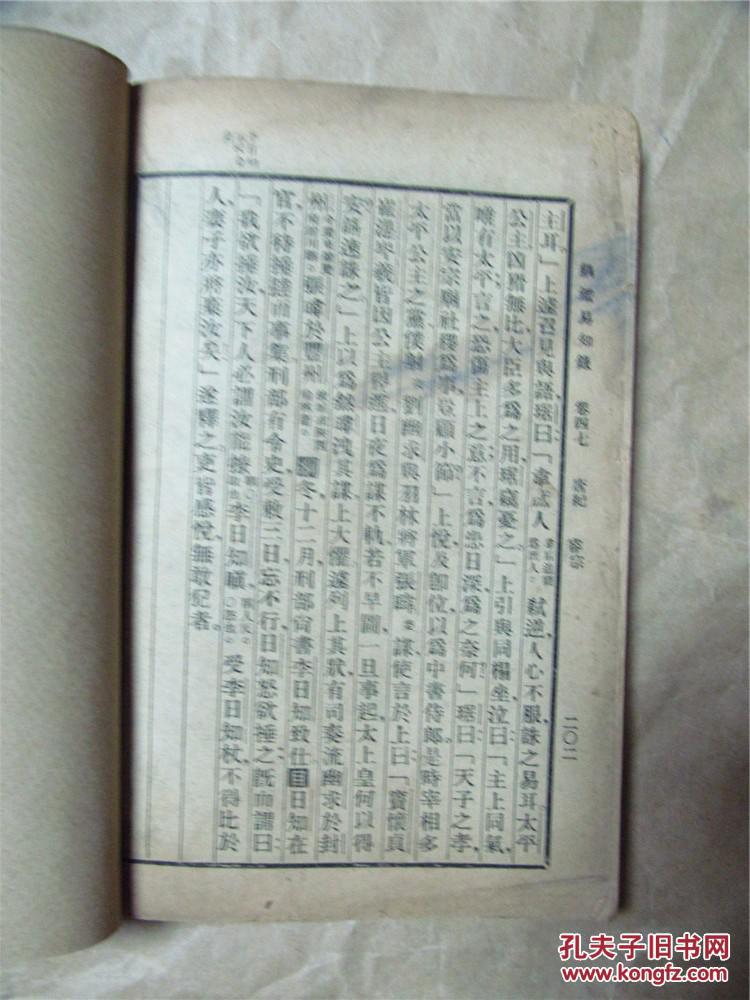 綱鑑易知錄 卷四七 唐紀 睿宗 二〇二
主耳」上遽召見與語琚曰「韋庶人 弑逆人心不服誅之易耳太平
公主凶猾無比大臣多為之用琚竊憂之」上引與同榻坐泣曰「主上同氣
唯有太平言之恐傷主上之意不言為患日深為之奈何」琚曰「天子之孝
當以安宗廟社稷為事豈顧小節」上悅及卽位以為中書侍郎是時宰相多
太平公主之黨僕射 劉幽求與羽林將軍張暐 謀使言於上曰「竇懷貞
崔湜岑羲皆因公主得進日夜為謀不軌若不早圖一旦事起太上皇何以得
安請速誅之」上以為然暐洩其謀上大懼遽列上其狀有司奏流幽求於封
州 張暐於豐州 冬十二月刑部尙書李日知致仕 目 日知在
官不行捶撻而事集刑部有令史受敕三日忘不行日知怒欲捶之旣而謂曰
「我欲捶汝天下人必謂汝能撩 李日知嗔 受李日知杖不得比於
人妻子亦將棄汝矣」遂釋之吏皆感悅無敢犯者
孔夫子旧书网
www.kongfz.com